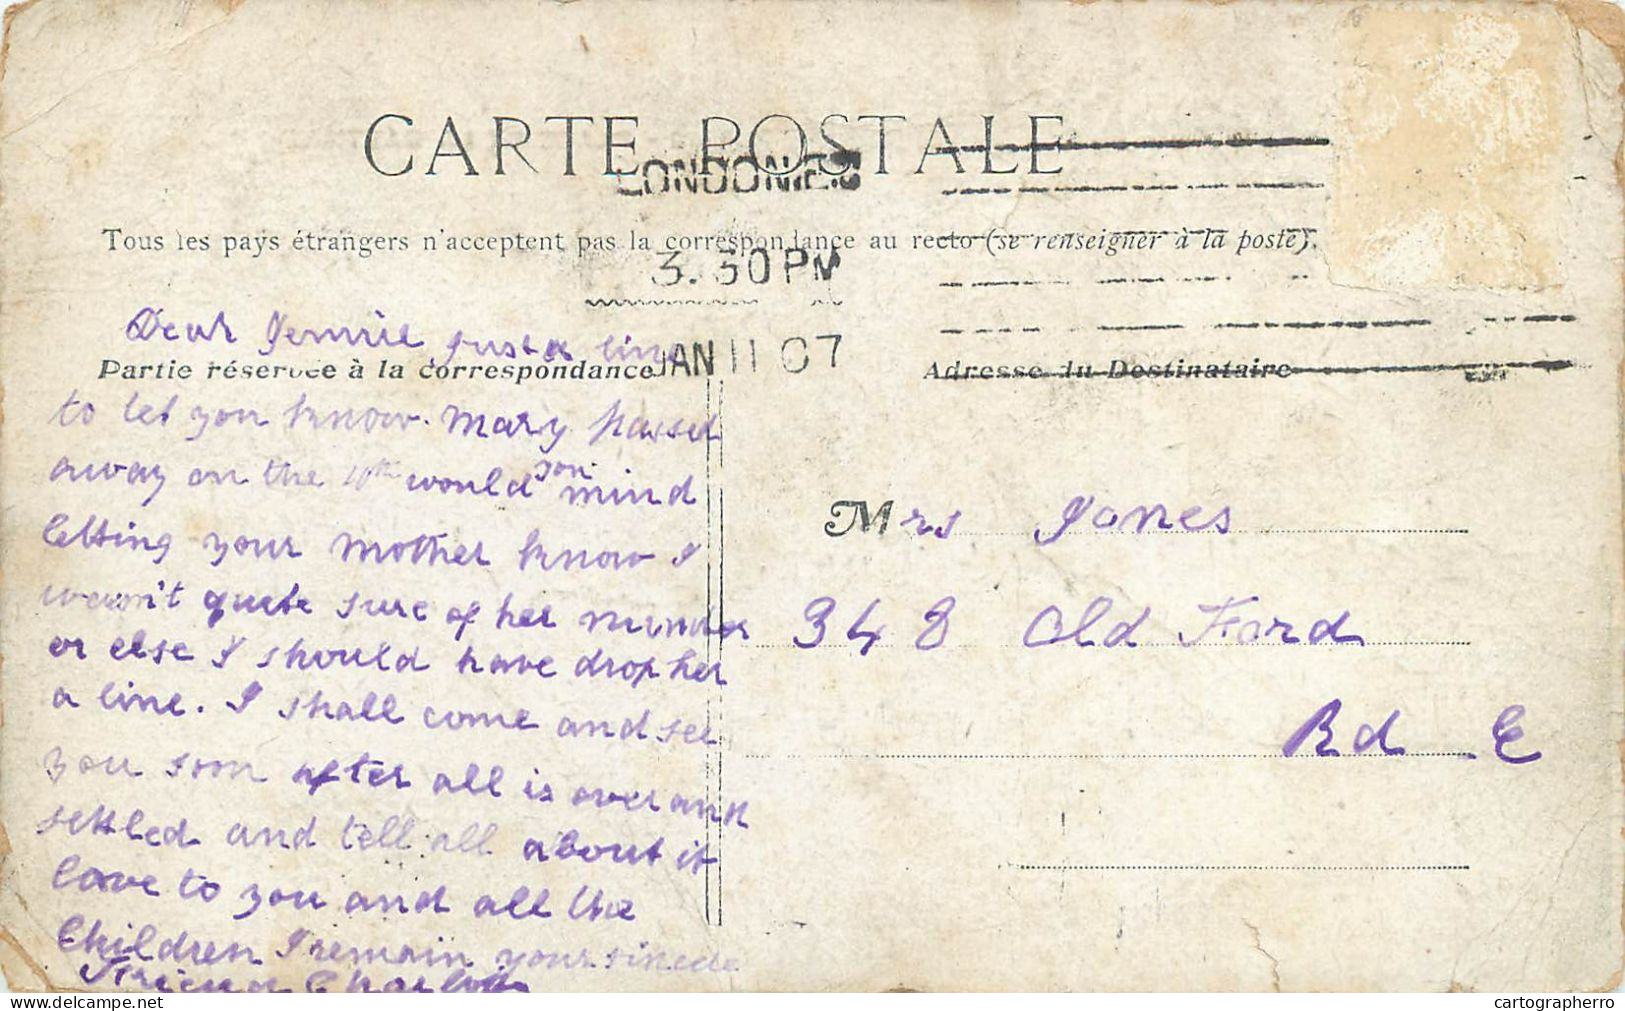 CARTE POSTALE
LONDON. E.
Tous les pays étrangers n'acceptent pas la correspondance au recto (se renseigner à la poste).
3.30 PM
Dear Jennie just a line
Partie réservée à la correspondance
JAN 11 07
Adresse du Destinataire
to let you know. Mary passed
away on the 10th would you mind
letting your mother know I
wasn't quite sure of her number
or else I should have drop her
a line. I shall come and see
you soon after all is over and
settled and tell all about it
love to you and all the
Children I remain your sincere
Friend Charlotte
Mrs Jones
348 Old Ford
Rd E
cartographerro